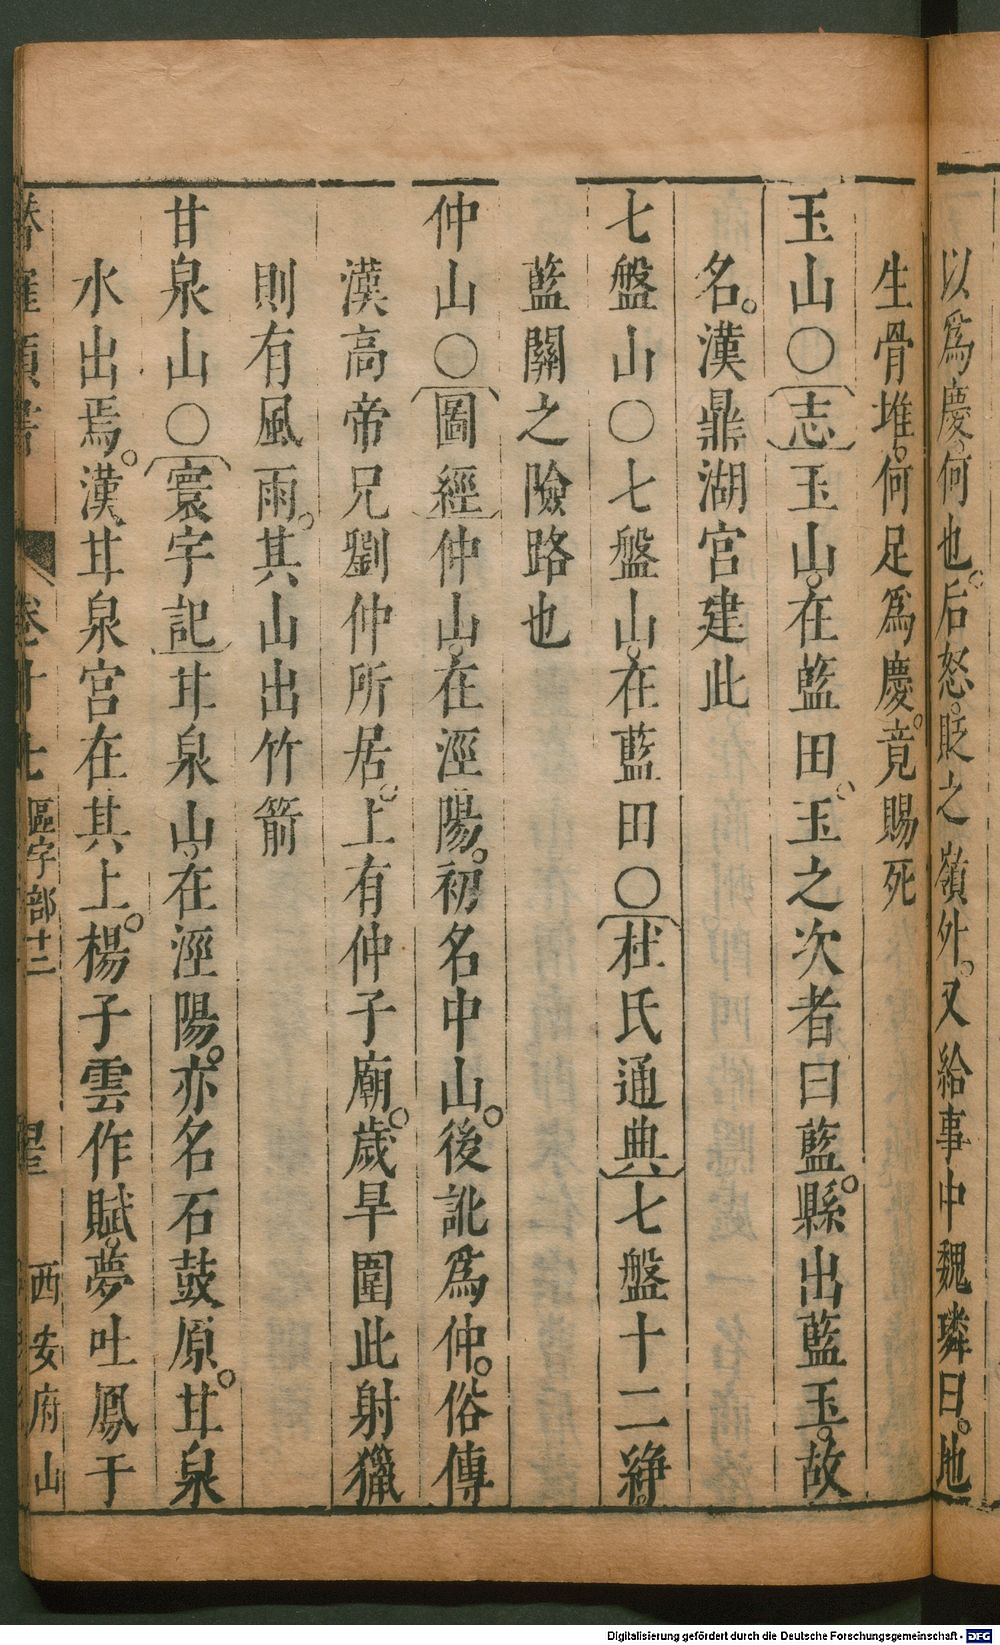 以爲慶何也。后怒。貶之嶺外。又給事中魏璘曰。地
生骨堆。何足爲慶。竟賜死
玉山○志玉山。在藍田。玉之次者曰藍。縣出藍玉。故
名。漢鼎湖宮建此
七盤山○七盤山。在藍田○杜氏通典七盤十二繂。
藍關之險路也
仲山○圖經仲山。在涇陽。初名中山。後訛爲仲。俗傳
漢高帝兄劉仲所居。上有仲子廟。歲旱圍此射獵
則有風雨。其山出竹箭
甘泉山○寰宇記甘泉山。在涇陽。亦名石鼓原。甘泉
水出焉。漢甘泉宮在其上。楊子雲作賦。夢吐鳳于
卷十七 區宇部十二 西安府山
Digitalisierung gefördert durch die Deutsche Forschungsgemeinschaft - DFG